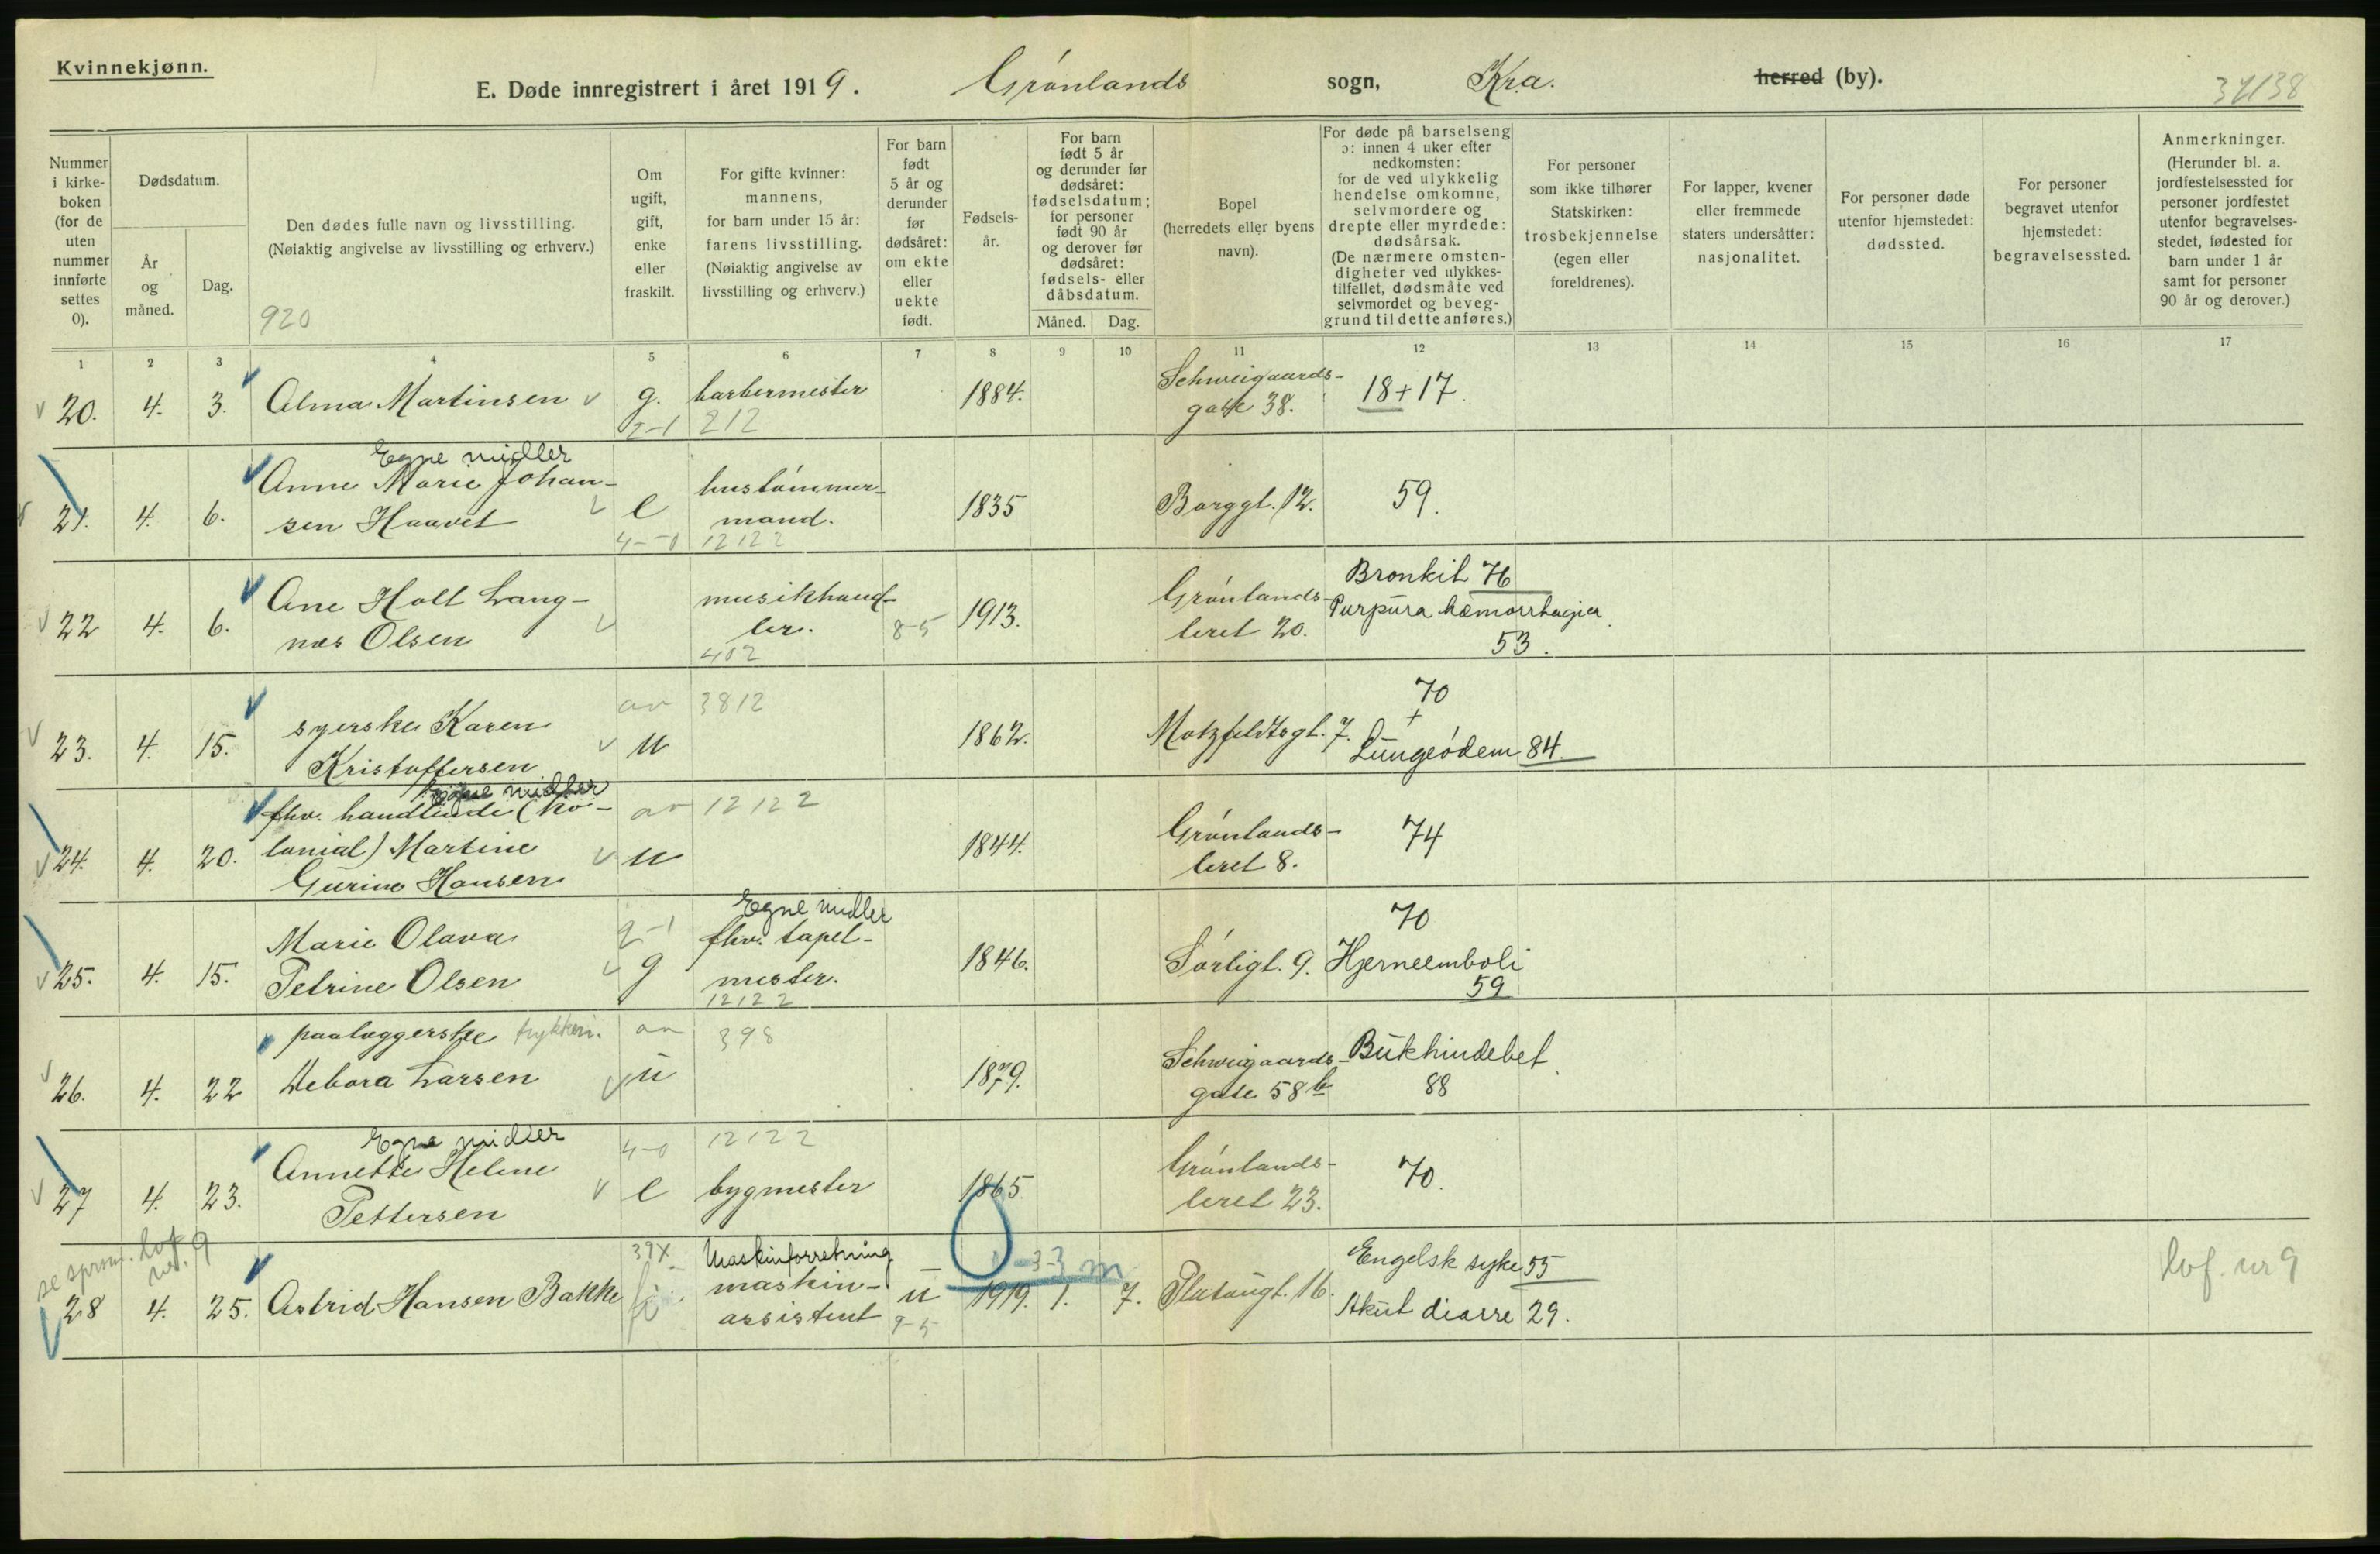 Kvinnekjønn.
E. Døde innregistrert i året 1919. Grønlands sogn, Kra. herred (by).
Nummer i kirkeboken (for de uten nummer innførte settes 0).
Dødsdatum.
År og måned.
Dag.
Den dødes fulle navn og livsstilling.
(Nøiaktig angivelse av livsstilling og erhverv.)
920
Om ugift, gift, enke eller fraskilt.
For gifte kvinner: mannens, for barn under 15 år: farens livsstilling. (Nøiaktig angivelse av livsstilling og erhverv.)
For barn født 5 år og derunder før dødsåret: om ekte eller uekte født.
Fødselsår.
For barn født 5 år og derunder før dødsåret: fødselsdatum; for personer født 90 år og derover før dødsåret: fødsels- eller dåbsdatum.
Måned. Dag.
Bopel (herredets eller byens navn).
For døde på barselseng ɔ: innen 4 uker efter nedkomsten: for de ved ulykkelig hendelse omkomne, selvmordere og drepte eller myrdede: dødsårsak. (De nærmere omstendigheter ved ulykkestilfellet, dødsmåte ved selvmordet og beveggrund til dette anføres.)
For personer som ikke tilhører Statskirken: trosbekjennelse (egen eller foreldrenes).
For lapper, kvener eller fremmede staters undersåtter: nasjonalitet.
For personer døde utenfor hjemstedet: dødssted.
For personer begravet utenfor hjemstedet: begravelsessted.
Anmerkninger. (Herunder bl. a. jordfestelsessted for personer jordfestet utenfor begravelsesstedet, fødested for barn under 1 år samt for personer 90 år og derover.)
1 2 3 4 5 6 7 8 9 10 11 12 13 14 15 16 17
20. 4. 3. Alma Martinsen g. barbermester 1884. Schweigaards- 18+17.
2-1 212 gate 38.
Egne midler
21. 4. 6. Anne Marie Johan- e hustømmer- 1835 Borggt. 12. 59.
sen Haavet mand.
4-0 12122
22 4. 6. Ane Holt Lang- musikhand- 8-5 1913. Grønlands- Bronkit 76
nes Olsen ler. leret 20. Purpura hæmorrhagica
402 53.
23. 4. 15. syerske Karen av 3812 1862. Motzfeldtsgt. 7. 70
Kristoffersen u + Lungeødem 84
Egne midler
24. 4. 20. fhv. handlende (ko- av 12122 1844. Grønlands- 74
lonial) Martine u leret 8.
Gurine Hansen
Egne midler
25. 4. 15. Marie Olava 2-1 fhv. tapet- 1846. Sørligt. 9. 70
Petrine Olsen g mester. Hjerneemboli
12122 59
26. 4. 22 paalæggerske trykkeri. av 398 1879. Schweigaards- Bukhindebet.
Debora Larsen u gate 58b 88
Egne midler
27 4. 23. Annette Helene 4-0 12122 1865 Grønlands- 70.
Pettersen e bygmester leret 23.
se lvf nr. 9
28 4. 25. Astrid Hansen Bakke 39x Maskinforretning u 1919. 1. 7. Platougt. 16. Engelsk syke 55 lvf. nr 9
maskin- 9-5 3 m Akut diarre 29.
assistent